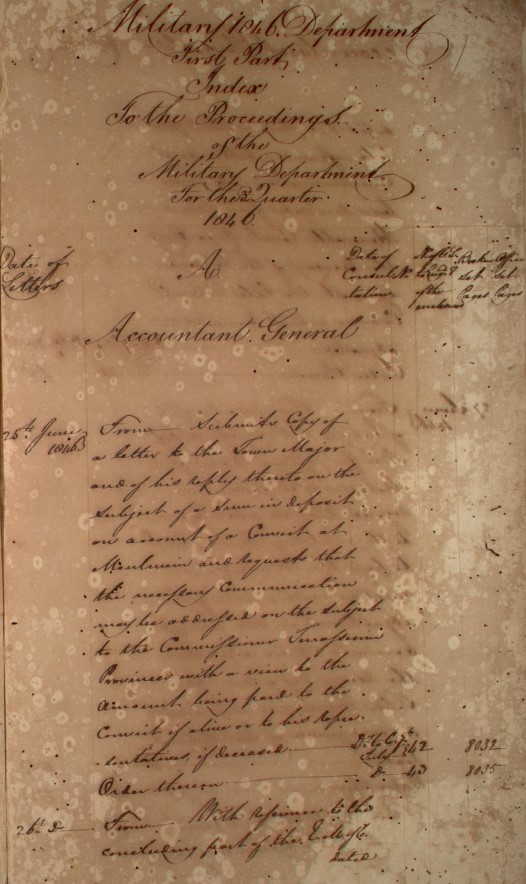 Military 1846. Department
First Part
Index
To the Proceedings
of the
Military Department
For the 3d Quarter
1846
Date of Letters
A
Date of Consultation
Accountant General
25th June 1846
From Submits Copy of
a letter to the Town Major
and of his reply thereto on the
subject of a Sum in deposit
on account of a Convict at
Moulmein and requests that
the necessary Communication
may be addressed on the subject
to the Commissioner Tenasserim
Provinces with a view to the
amount being paid to the
Convict if alive or to his repre-
-sentatives, if deceased 42 8032
Order thereon do 43 8035
26th do From With reference to the
concluding part of the
dated